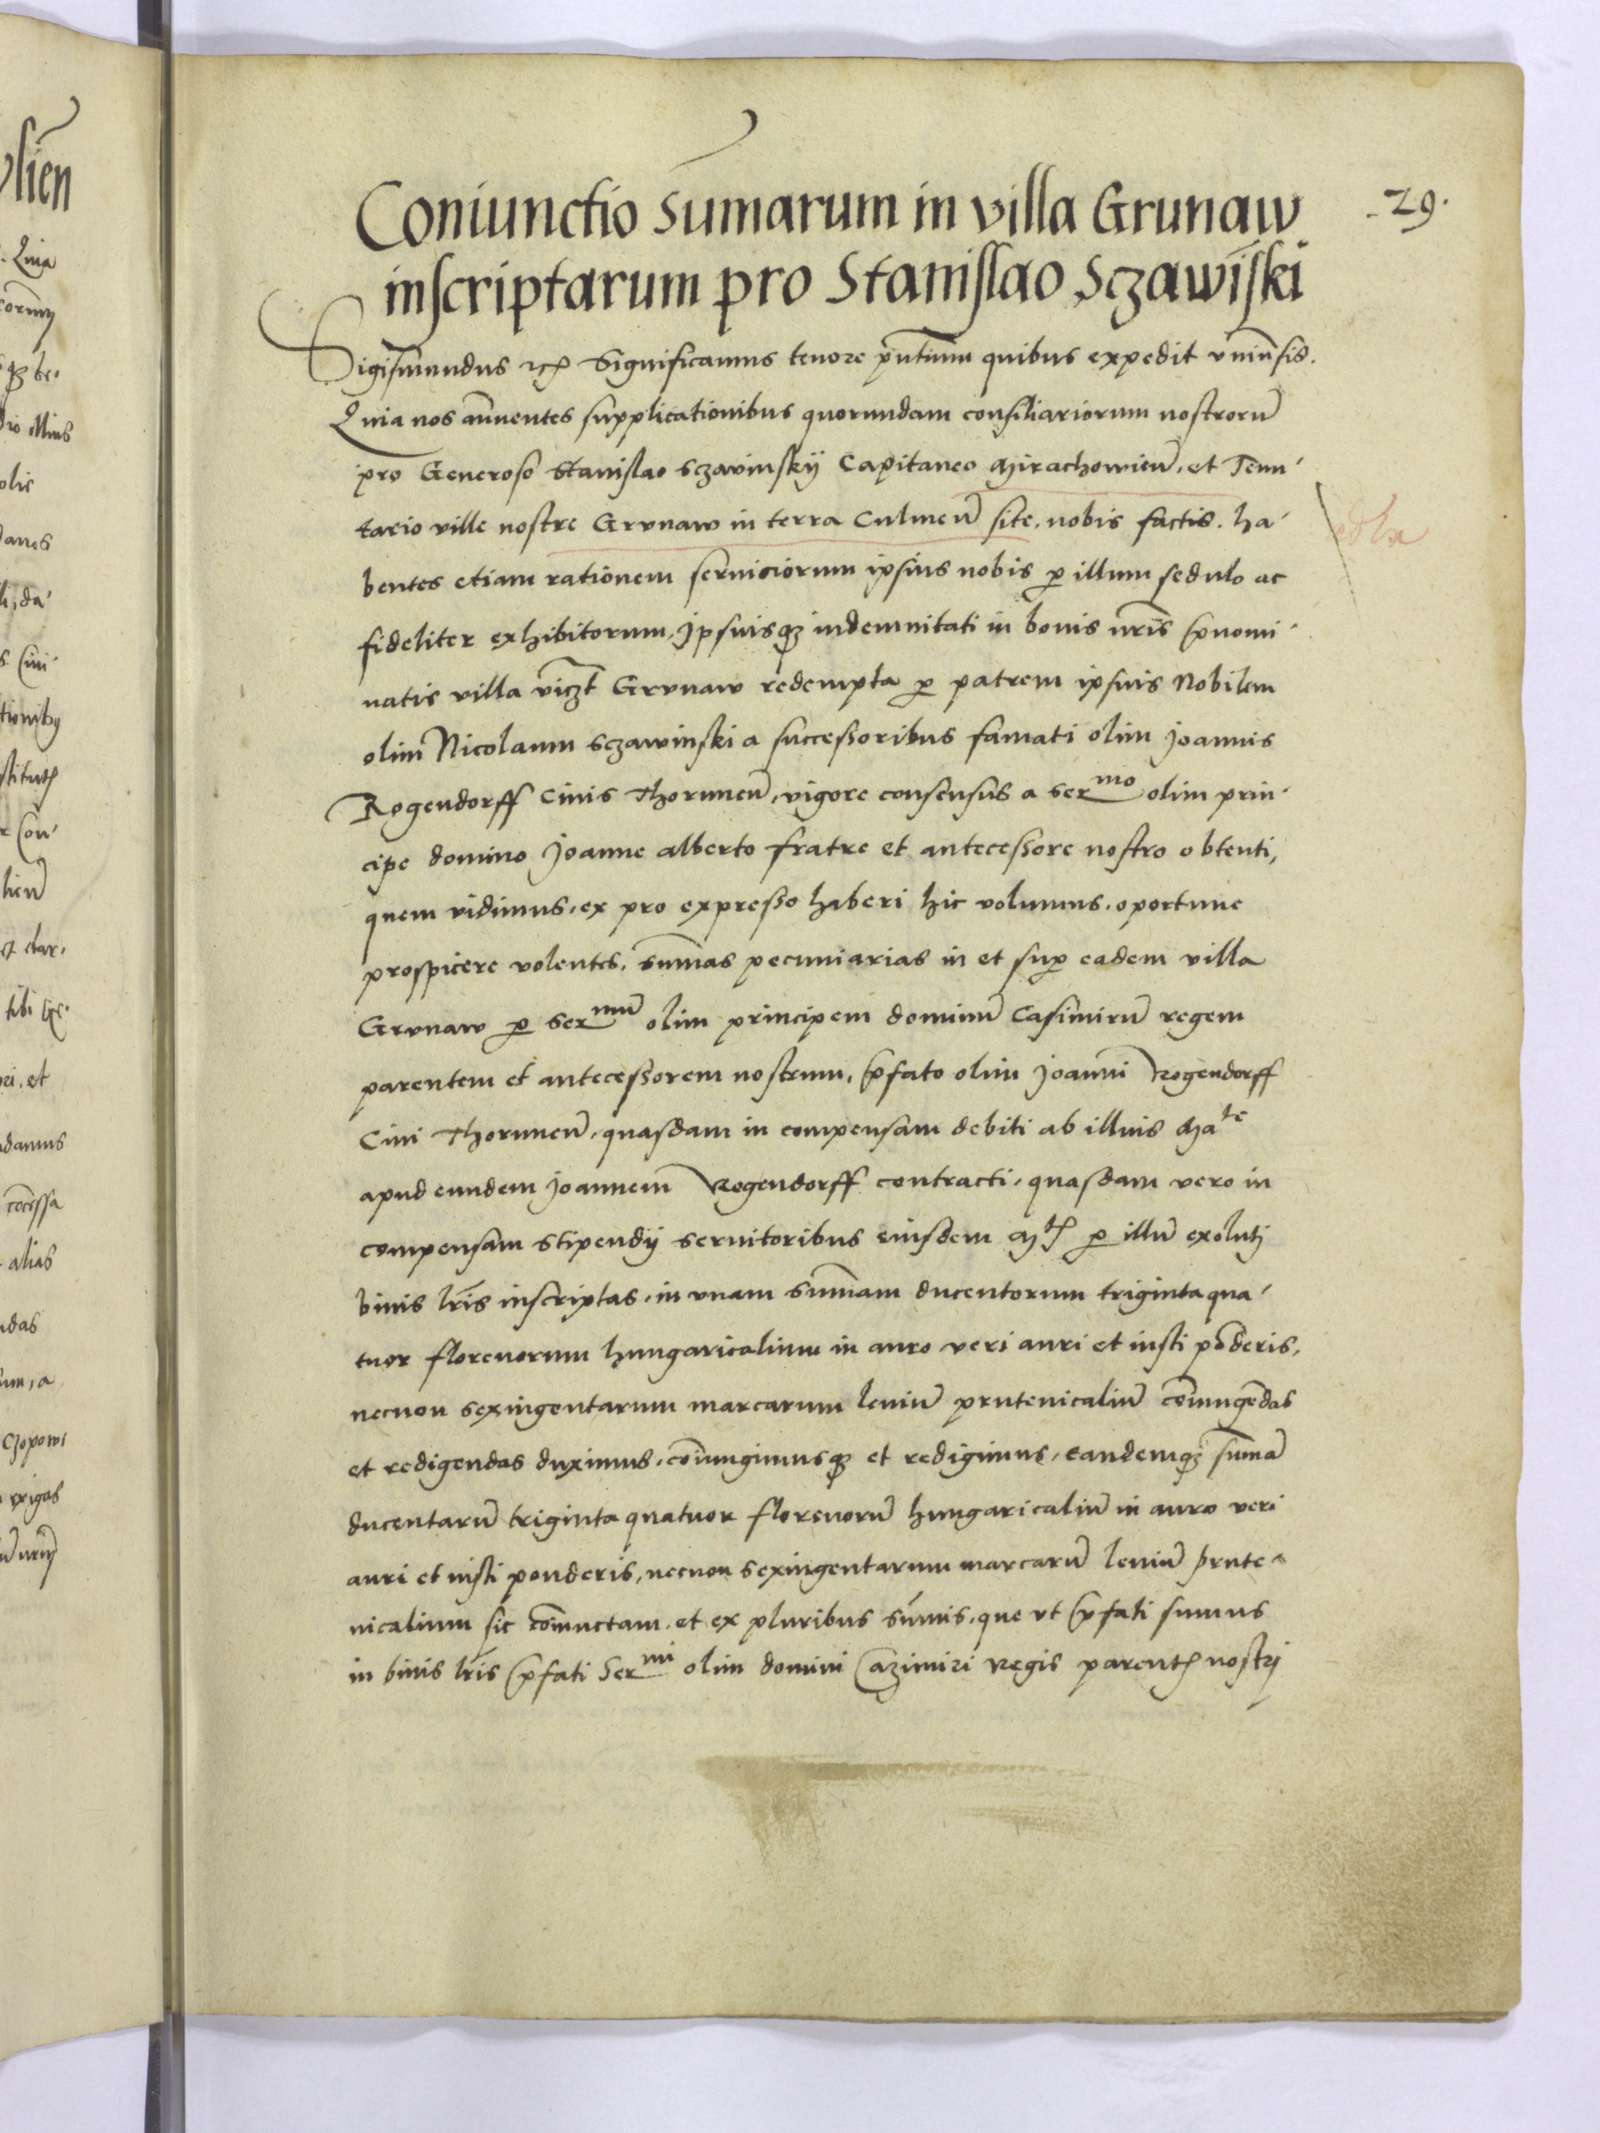 Coniunctio sum̄arum in villa Grunaw
.29.
inscriptarum pro Stanislao Sczawīski
Sigismundus etc. Significamus tenore pn̄tium quibus expedit vniūsis.
Quia nos annuentes supplicationibus quorundam consiliariorum nostrorū
pro Generoso Stanislao Sczawinskÿ Capitaneo Mirachowien̄, et Tenu-
tario ville nostre Grvnaw in terra Culmen̄ site, nobis factis. ha-
bentes etiam rationem seruiciorum ipsius nobis p illum sedulo ac
fideliter exhibitorum, Ipsiusqz indemnitati in bonis nr̄is p̄nomi-
natis villa viczt Grvnaw redempta p patrem ipsius Nobilem
olim Nicolaum Sczawinski a successoribus famati olim Joannis
Rogendorff Ciuis Thorunen̄, vigore consensus a Ser^mo olim prin-
cipe domino Joanne alberto fratre et antecessore nostro obtenti,
quem vidimus, ex pro expresso haberi hic volumus, oportune
prospicere volentes, sum̄as pecuniarias in et sup eadem villa
Grvnaw p Ser^mū olim principem dominū Casimirū regem
parentem et antecessorem nostrum, p̄fato olim Joanni Rogendorff
Ciui Thorunen̄, quasdam in compensam debiti ab illius Ma^te
apud eundem Joannem Rogendorff contracti, quasdam vero in
compensam stipendij seruitoribus eiusdem M^t p illū exoluti
binis lr̄is inscriptas, in vnam sum̄am ducentorum triginta qua-
tuor florenorum hungaricalium in auro veri auri et iusti pōderis,
necnon sexingentarum marcarum leuiū prutenicaliū cōiungēdas
et redigendas duximus, cōiungimusqz et redigimus, eandemqz sum̄ā
ducentarū triginta quatuor florenorū hungaricaliū in auro veri
auri et iusti ponderis, necnon sexingentarum marcarū leuiū prute-
nicalium sic cōiunctam, et ex pluribus sūmis, que vt p̄fati sumus
in binis lr̄is p̄fati Ser^mi olim domini Cazimiri Regis parentis nostri